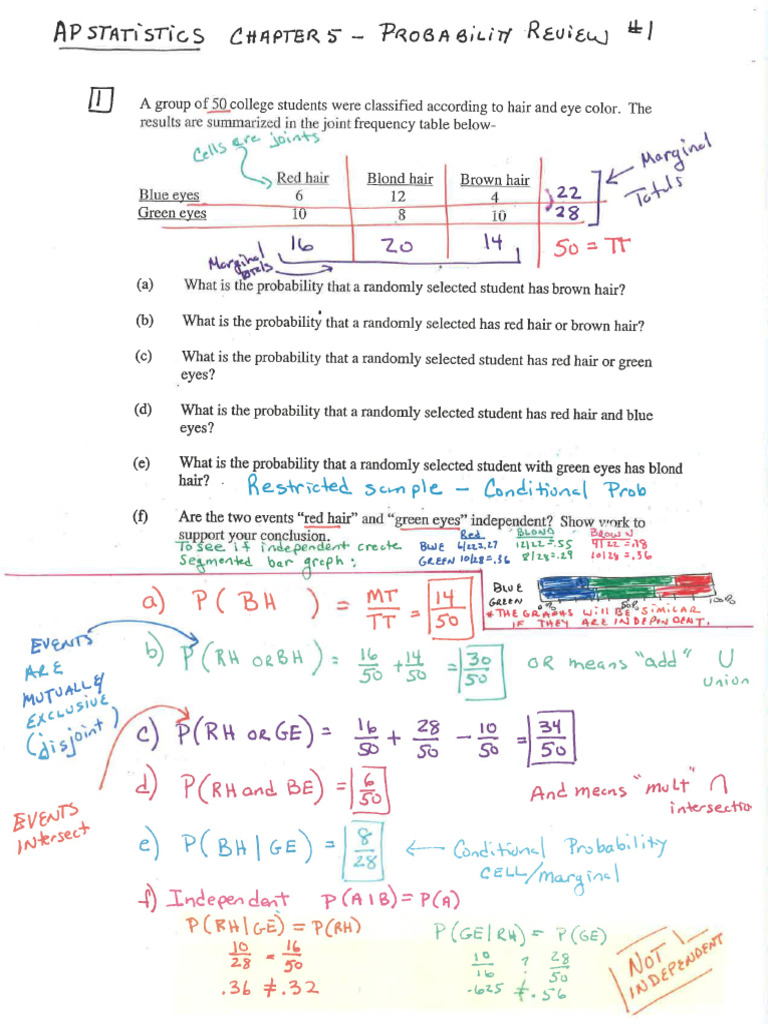 AP STATISTICS CHAPTER 5 – PROBABILITY REVIEW #1
1 A group of 50 college students were classified according to hair and eye color. The
results are summarized in the joint frequency table below-
Cells are joints
Red hair Blond hair Brown hair
Blue eyes 6 12 4 22
Green eyes 10 8 10 28
16 20 14 50 = TT
Marginal Totals
Marginal totals
(a) What is the probability that a randomly selected student has brown hair?
(b) What is the probability that a randomly selected has red hair or brown hair?
(c) What is the probability that a randomly selected student has red hair or green
eyes?
(d) What is the probability that a randomly selected student has red hair and blue
eyes?
(e) What is the probability that a randomly selected student with green eyes has blond
hair? Restricted sample – Conditional Prob
(f) Are the two events "red hair" and "green eyes" independent? Show work to
support your conclusion.
Red BLOND BROWN
To see if independent create BLUE 6/22=.27 12/22=.55 4/22=.18
Segmented bar graph: GREEN 10/28=.36 8/28=.29 10/28=.36
BLUE
GREEN 0% 50% 100%
*THE GRAPHS WILL BE SIMILAR
IF THEY ARE INDEPENDENT.
a) P(BH) = MT/TT = 14/50
EVENTS
ARE
MUTUALLY
EXCLUSIVE
(disjoint)
b) P(RH OR BH) = 16/50 + 14/50 = 30/50 OR means "add" U
union
c) P(RH OR GE) = 16/50 + 28/50 - 10/50 = 34/50
d) P(RH and BE) = 6/50 And means "mult" ∩
intersectio
EVENTS
intersect
e) P(BH|GE) = 8/28 ← Conditional Probability
CELL/marginal
f) Independent P(A|B) = P(A)
P(RH|GE) = P(RH) P(GE|RH) = P(GE)
10/28 = 16/50 10/16 ? 28/50
.36 ≠ .32 .625 ≠ .56
NOT
INDEPENDENT